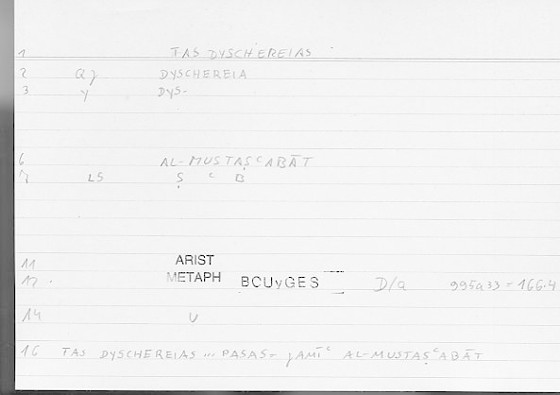 1 TAS DYSCHEREIAS
2 Qj DYSCHEREIA
3 y DYS-
6 AL-MUSTAṢᶜABĀT
7 LS Ṣ ᶜ B
11 ARIST
12. METAPH BOUyGES D/a 995a33 = 166.4
14 U
16 TAS DYSCHEREIAS ... PASAS = jAMĪᶜ AL-MUSTAṢᶜABĀT